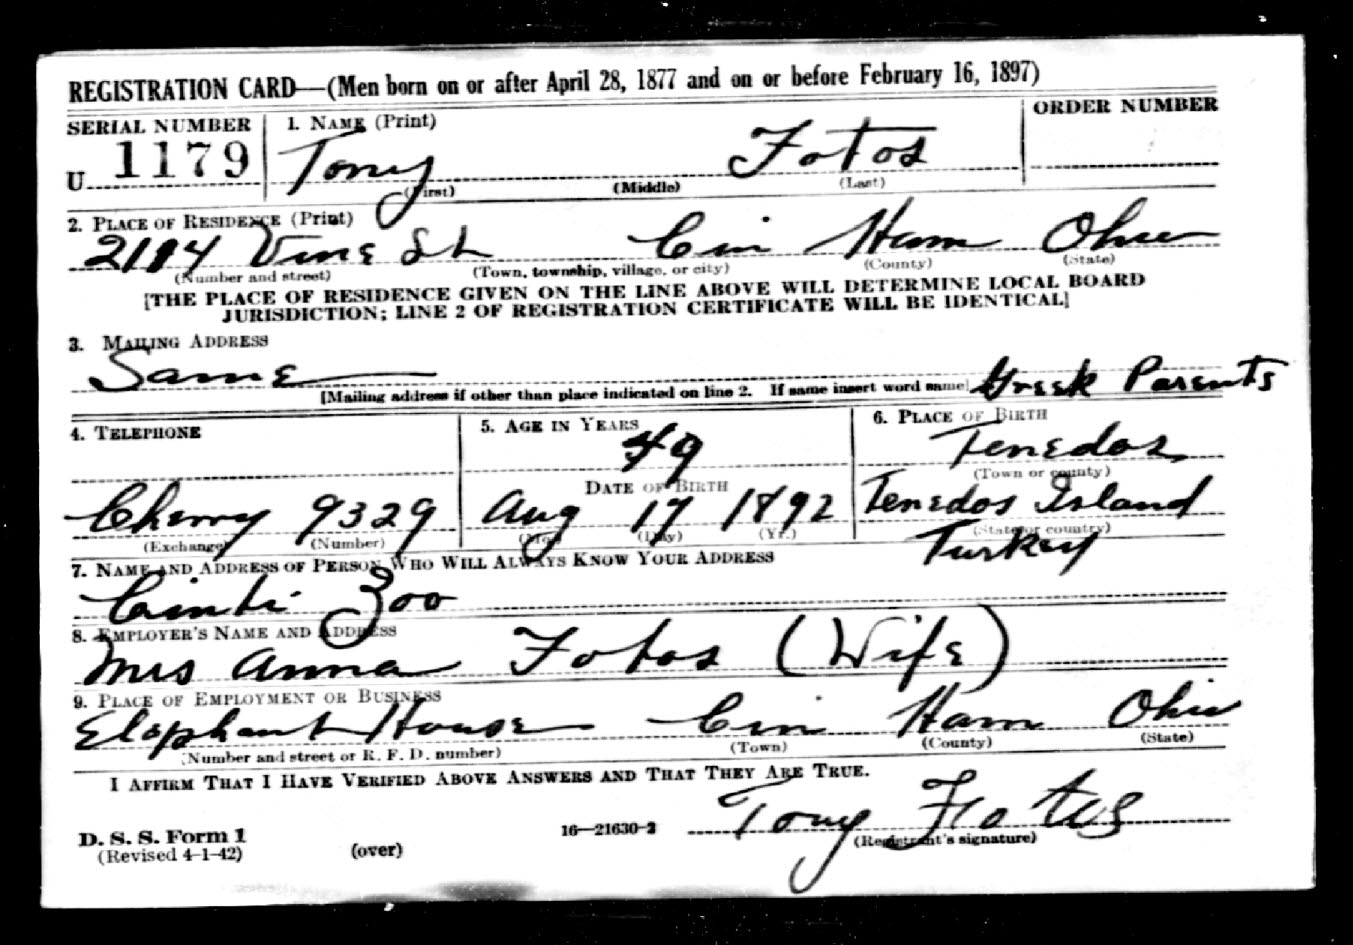 REGISTRATION CARD—(Men born on or after April 28, 1877 and on or before February 16, 1897)
SERIAL NUMBER 1. NAME (Print) ORDER NUMBER
U 1179 Tony Fotos
(First) (Middle) (Last)
2. PLACE OF RESIDENCE (Print)
2114 Vine St Cin Ham Ohio
(Number and street) (Town, township, village, or city) (County) (State)
[THE PLACE OF RESIDENCE GIVEN ON THE LINE ABOVE WILL DETERMINE LOCAL BOARD
JURISDICTION; LINE 2 OF REGISTRATION CERTIFICATE WILL BE IDENTICAL]
3. MAILING ADDRESS
Same Greek Parents
[Mailing address if other than place indicated on line 2. If same insert word same]
4. TELEPHONE 5. AGE IN YEARS 6. PLACE OF BIRTH
49 Tenedos
(Town or county)
DATE OF BIRTH
Cherry 9329 Aug 17 1892 Tenedos Island
(Exchange) (Number) (Mo.) (Day) (Yr.) (State or country)
Turkey
7. NAME AND ADDRESS OF PERSON WHO WILL ALWAYS KNOW YOUR ADDRESS
Cinti Zoo
8. EMPLOYER'S NAME AND ADDRESS
Mrs Anna Fotos (Wife)
9. PLACE OF EMPLOYMENT OR BUSINESS
Elephant House Cin Ham Ohio
(Number and street or R. F. D. number) (Town) (County) (State)
I AFFIRM THAT I HAVE VERIFIED ABOVE ANSWERS AND THAT THEY ARE TRUE.
Tony Fotos
D. S. S. Form 1 16—21630-2 (Registrant's signature)
(Revised 4-1-42) (over)